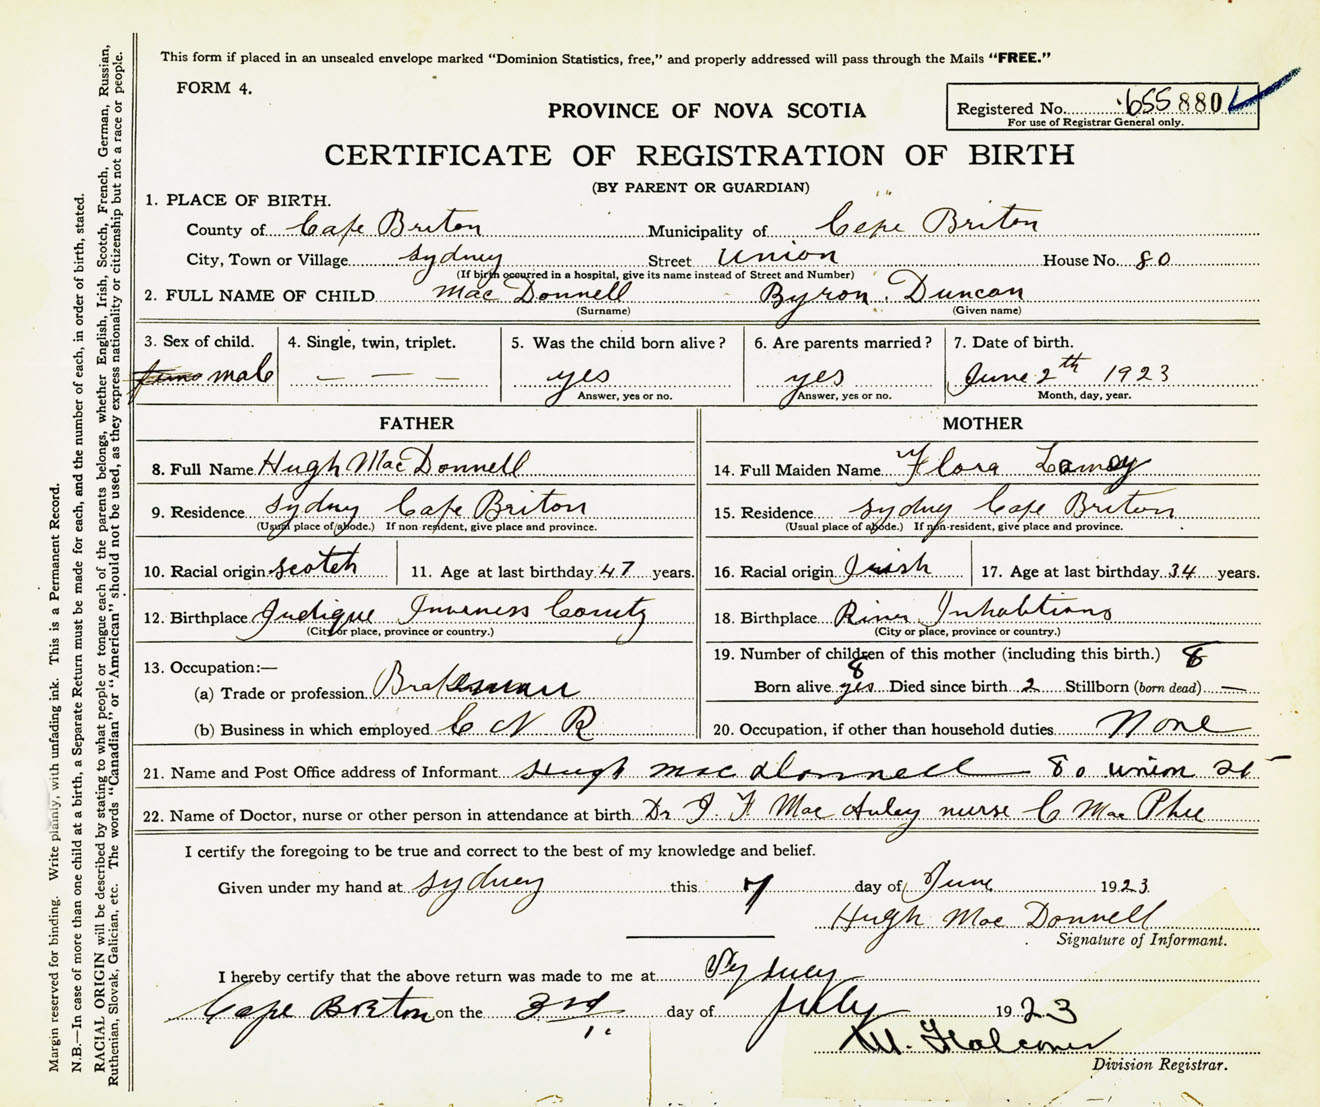 This form if placed in an unsealed envelope marked “Dominion Statistics, free,” and properly addressed will pass through the Mails “FREE.”
FORM 4.
Registered No. 655880
For use of Registrar General only.
PROVINCE OF NOVA SCOTIA
CERTIFICATE OF REGISTRATION OF BIRTH
(BY PARENT OR GUARDIAN)
1. PLACE OF BIRTH.
County of Cape Briton Municipality of Cepe Briton
City, Town or Village Sydney Street Union House No. 80
(If birth occurred in a hospital, give its name instead of Street and Number)
2. FULL NAME OF CHILD Mac Donnell Byron Duncan
(Surname) (Given name)
3. Sex of child. 4. Single, twin, triplet. 5. Was the child born alive? 6. Are parents married? 7. Date of birth.
male — — — yes yes June 2th 1923
Answer, yes or no. Answer, yes or no. Month, day, year.
FATHER MOTHER
8. Full Name Hugh MacDonnell 14. Full Maiden Name Flora
9. Residence Sydney Cape Briton 15. Residence Sydney Cape Briton
(Usual place of abode.) If non-resident, give place and province. (Usual place of abode.) If non-resident, give place and province.
10. Racial origin Scotch 11. Age at last birthday 47 years. 16. Racial origin Irish 17. Age at last birthday 34 years.
12. Birthplace Judique Inverness County 18. Birthplace River Inhabitions
(City or place, province or country.) (City or place, province or country.)
13. Occupation:— 19. Number of children of this mother (including this birth.) 8
(a) Trade or profession. Brakesman Born alive 8 yes Died since birth 2 Stillborn (born dead) —
(b) Business in which employed C N R 20. Occupation, if other than household duties None
21. Name and Post Office address of Informant Hugh Mac Donnell — 80 Union St
22. Name of Doctor, nurse or other person in attendance at birth Dr J. F Mac Auley nurse C Mac Phee
I certify the foregoing to be true and correct to the best of my knowledge and belief.
Given under my hand at Sydney this 7 day of June 1923
Hugh Mac Donnell
Signature of Informant.
I hereby certify that the above return was made to me at Sydney
Cape Breton on the 3rd day of July 1923
Falconer
Division Registrar.
Margin reserved for binding. Write plainly, with unfading ink. This is a Permanent Record.
N.B.—In case of more than one child at a birth, a Separate Return must be made for each, and the number of each, in order of birth, stated.
RACIAL ORIGIN will be described by stating to what people or tongue each of the parents belongs, whether English, Irish, Scotch, French, German, Russian,
Ruthenian, Slovak, Galician, etc. The words “Canadian” or “American” should not be used, as they express nationality or citizenship but not a race or people.